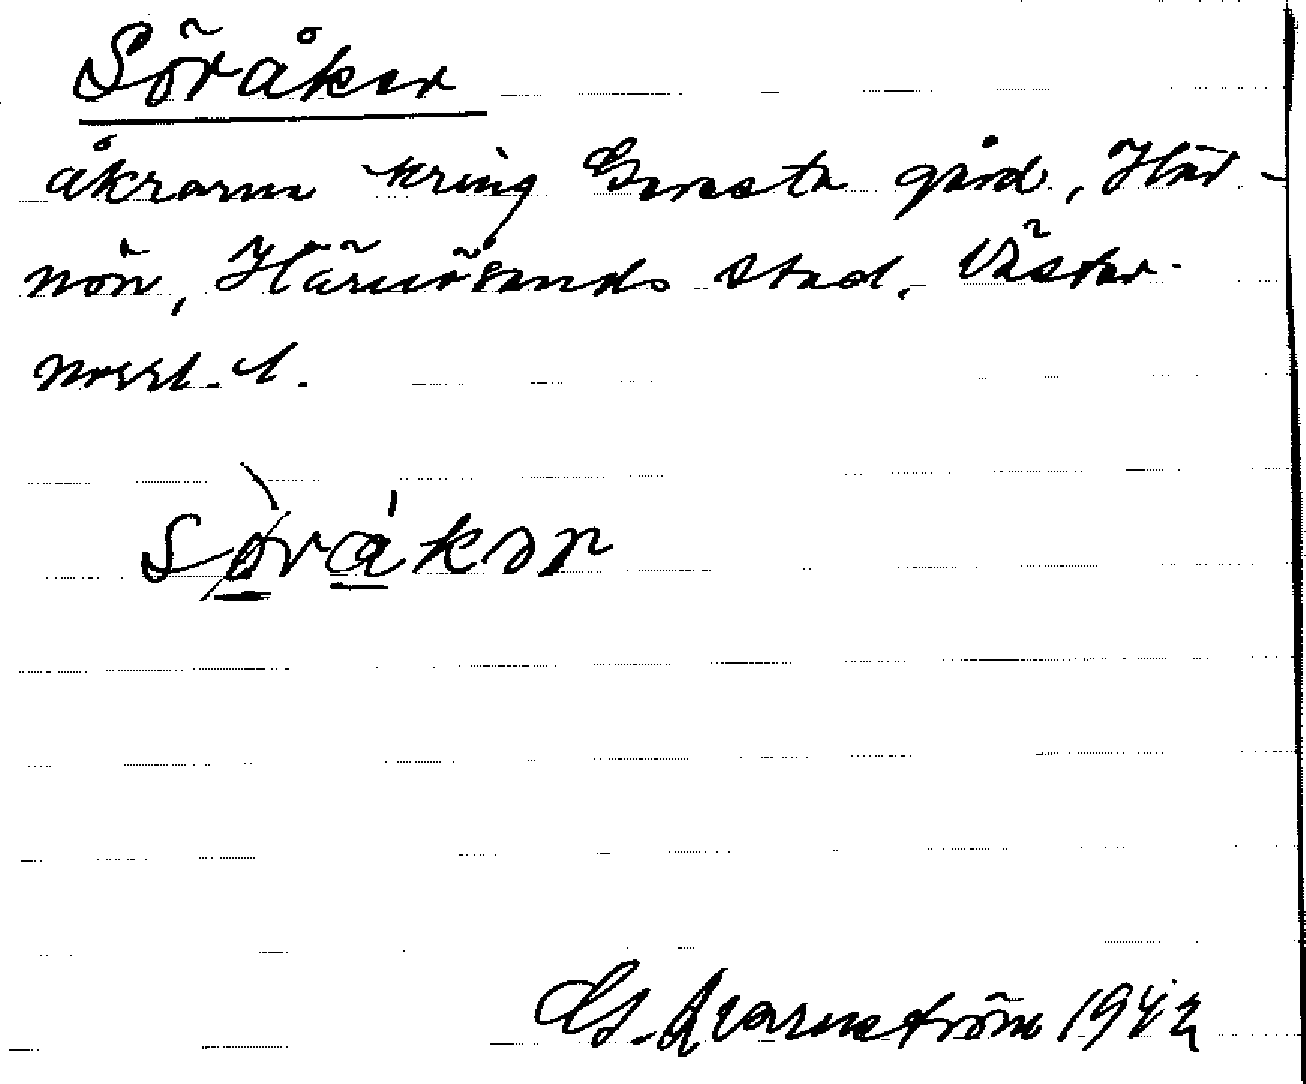 Söråker
åkrarna kring Gånsta gård, Här-
nön, Härnösands stad. Väster-
norrl. l.
Söråkər
G. Qvarnström 1942